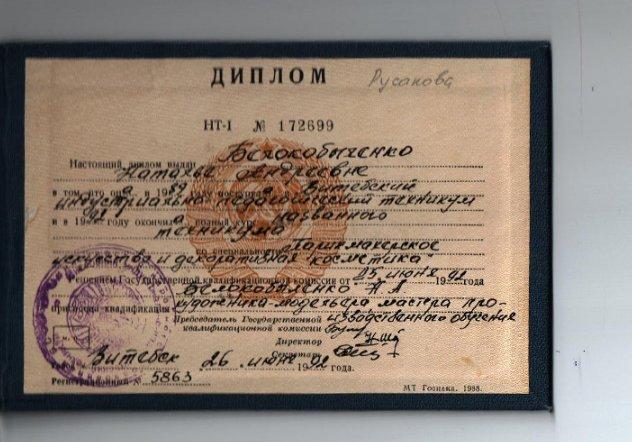 ДИПЛОМ Русакова
НТ-I № 172699
Настоящий диплом выдан Белокобыленко
Наталье Андреевне
в том, что она в 1989 году поступила в Витебский
индустриально-педагогический техникум
и в 1992 году окончила полный курс названного
техникума
по специальности Пастижерское
искусство и декоративная косметика
Решением Государственной квалификационной комиссии от 25 июня 1992 года
Белокобыленко Н А
присвоена квалификация художника-модельера мастера про-
изводственного обучения
Председатель Государственной
квалификационной комиссии
Директор
Секретарь
Витебск 26 июня 1992 года.
Регистрационный № 5863
МТ Гознака. 1988.